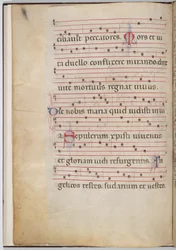 cavit peccatores. Mors et vi
ta duello conflixere mirando dux
vite mortuus regnat vivus.
Dic nobis maria quid vidisti in vi
a. Sepulcrum xpisti viventis
et gloriam vidi resurgentis. An
gelicos testes sudarium et vestes